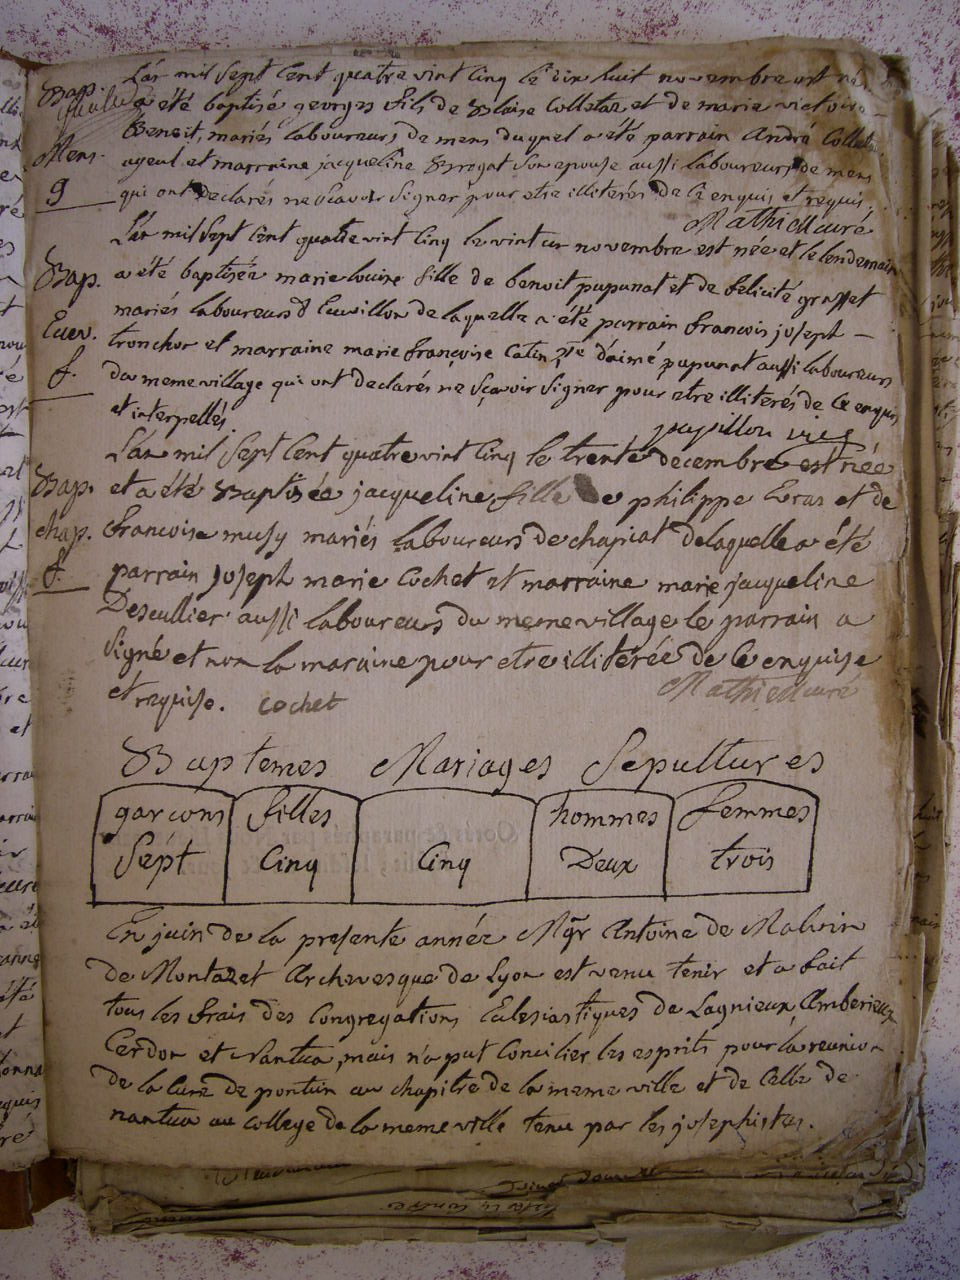 Bap. L'an mil sept cent quatre vint cinq le dix huit novembre est né
a été baptisé georges fils de Blaise Colletaz et de marie victoire
Benoit, mariés laboureurs de mens duquel a été parrain André
Mens. ayeul et marraine jacqueline Brogat son epouse aussi laboureurs de mens
g qui ont declarés ne scavoir signer pour etre illiterés de ce enquis et requis.
Mathieu curé
L'an mil sept cent quatre vint cinq le vint un novembre est née et le lendemain
Bap. a été baptisée marie louise fille de benoit pupunat et de felicité grasset
mariés laboureurs d' Euvillon de laquelle a été parrain francois joseph —
Euev. tronchor et marraine marie françoise Catin, d'aimé pupunat aussi laboureurs
f. du meme village qui ont declarés ne sçavoir signer pour etre illiterés de ce enquis
et interpellés.
papillon vic
L'an mil sept cent quatre vint cinq le trente decembre est née
Bap. et a été Baptisée jacqueline fille de philippe Cras et de
chap. francoise musy mariés laboureurs de chapiat de laquelle a été
f. parrain joseph marie cochet et marraine marie jacqueline
Descullier aussi laboureurs du meme village le parrain a
signé et non la maraine pour etre illitérée de ce enquise
et requise. cochet Mathieu curé
Baptemes Mariages Sepultures
garcons filles hommes femmes
Sept Cinq Cinq Deux trois
En juin de la presente année Mgr Antoine de Malvin
de Montazet Archevesque de Lyon est venu tenir et a fait
tous les frais des Congregations Eclesiastiques de Lagnieux, Amberieux
Cerdon et Nantua, mais n'a put concilier les esprits pour la reunion
de la cure de pontin au chapitre de la meme ville et de celle de
nantua au college de la meme ville tenu par les josephistes.